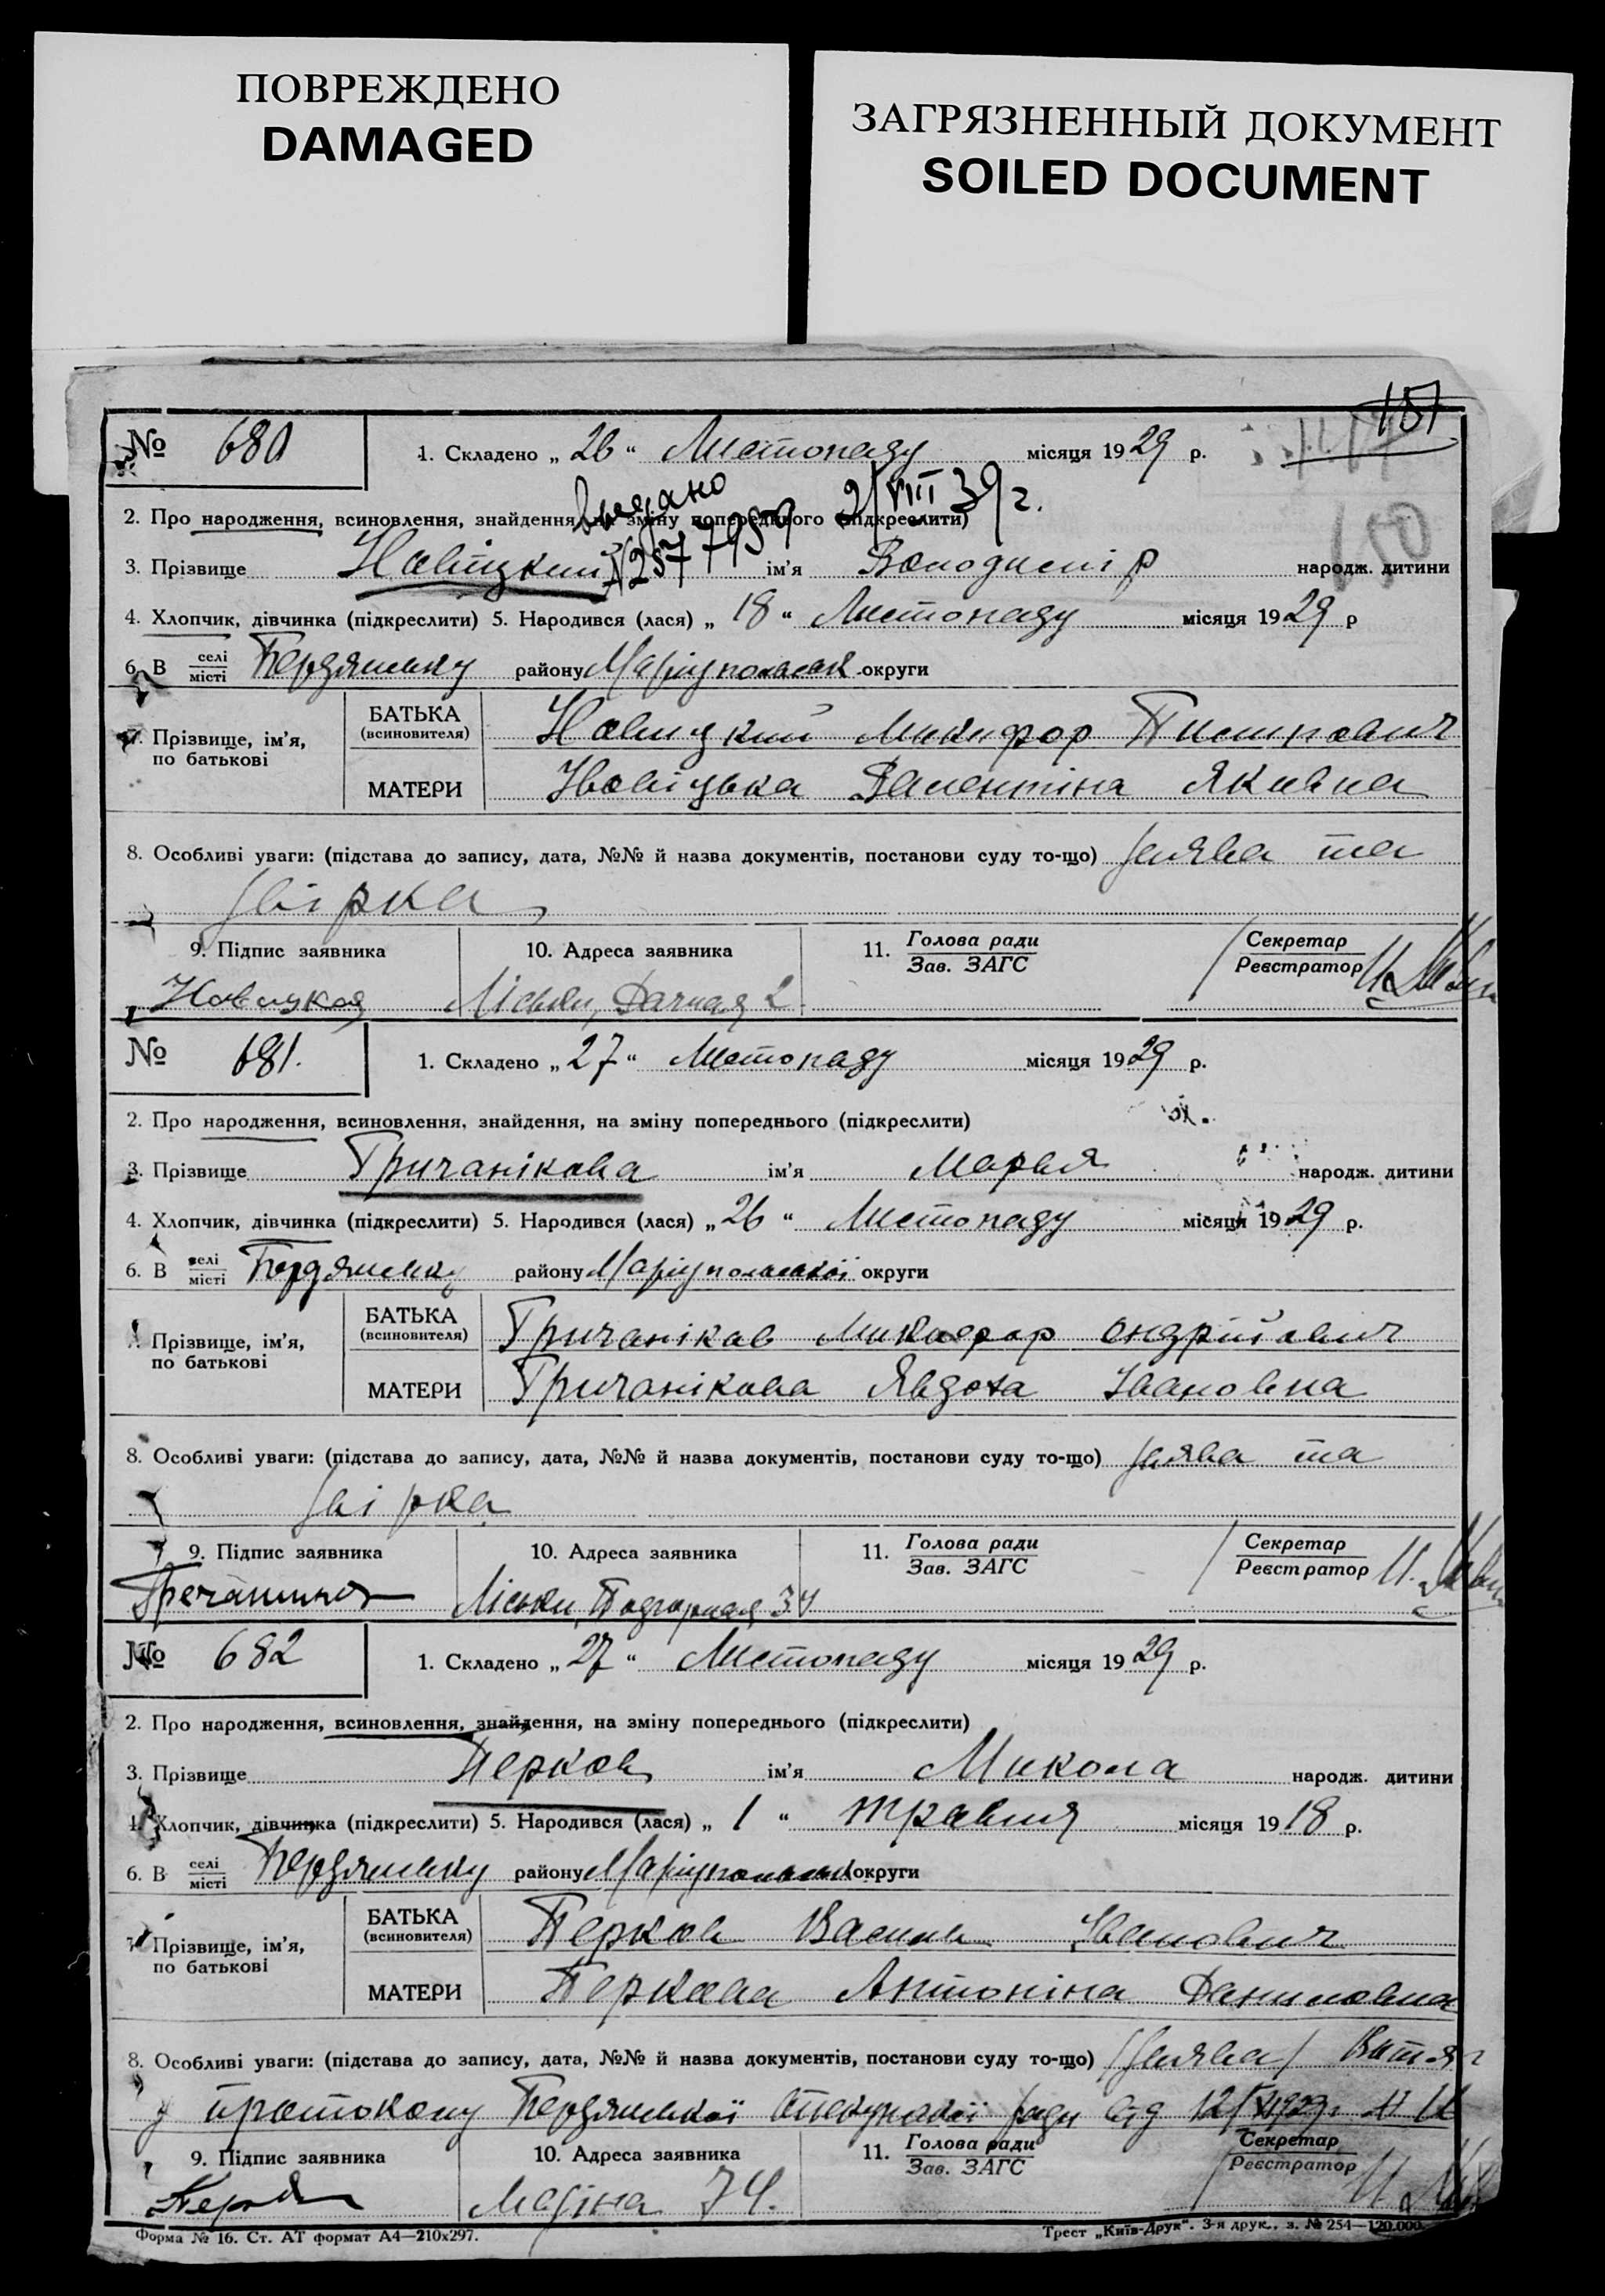 ПОВРЕЖДЕНО
DAMAGED
ЗАГРЯЗНЕННЫЙ ДОКУМЕНТ
SOILED DOCUMENT
157
№ 680 1. Складено „ 26 “ Листопаду місяця 1929 р.
видано 2/VIII 39 г.
2. Про народження, всиновлення, знайдення, на зміну попереднього (підкреслити)
3. Прізвище Новіцкий ім'я Володимір народж. дитини
4. Хлопчик, дівчинка (підкреслити) 5. Народився (лася) „ 18 “ Листопаду місяця 1929 р
6. В селі місті Бердянську району Маріупольськ округи
7. Прізвище, ім'я, по батькові
БАТЬКА (всиновителя) Новицкий Микифор Питрович
МАТЕРИ Новіцька Валентіна Якивна
8. Особливі уваги: (підстава до запису, дата, №№ й назва документів, постанови суду то-що) Заява та
звірка
9. Підпис заявника 10. Адреса заявника 11. Голова ради Зав. ЗАГС Секретар Реєстратор
Новицкая Ліськи, Дачная 2
№ 681. 1. Складено „ 27 “ Листопаду місяця 1929 р.
2. Про народження, всиновлення, знайдення, на зміну попереднього (підкреслити)
3. Прізвище Гричанікова ім'я Марья народж. дитини
4. Хлопчик, дівчинка (підкреслити) 5. Народився (лася) „ 26 “ Листопаду місяця 1929 р.
6. В селі місті Бердянську району Маріупольської округи
Прізвище, ім'я, по батькові
БАТЬКА (всиновителя) Гричаніков Микифор Ондрійович
МАТЕРИ Гричанікова Явдоха Івановна
8. Особливі уваги: (підстава до запису, дата, №№ й назва документів, постанови суду то-що) Заява та
звірка
9. Підпис заявника 10. Адреса заявника 11. Голова ради Зав. ЗАГС Секретар Реєстратор
Ліськи, Подгорная 34
№ 682 1. Складено „ 27 “ Листопаду місяця 1929 р.
2. Про народження, всиновлення, знайдення, на зміну попереднього (підкреслити)
3. Прізвище Перков ім'я Микола народж. дитини
4. Хлопчик, дівчинка (підкреслити) 5. Народився (лася) „ 1 “ травня місяця 1918 р.
6. В селі місті Бердянську району Маріупольськ округи
7. Прізвище, ім'я, по батькові
БАТЬКА (всиновителя) Перков Василь Іванович
МАТЕРИ Перкова Антоніна Даниловна
8. Особливі уваги: (підстава до запису, дата, №№ й назва документів, постанови суду то-що) Заява Витяг
у протокону Бердянської Опекунської ради від
9. Підпис заявника 10. Адреса заявника 11. Голова ради Зав. ЗАГС Секретар Реєстратор
74.
Форма № 16. Ст. АТ формат А4—210х297.
Трест „Київ-Друк“. 3-я друк., з. № 254—120.000